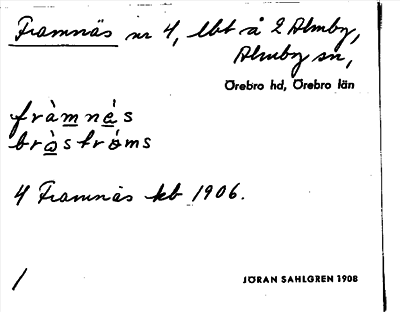 Framnäs nr 4, lbt å 2 Almby,
Almby sn,
Örebro hd, Örebro län
fràmnä̀s
bròströms
4 Framnäs kb 1906.
/
JÖRAN SAHLGREN 1908